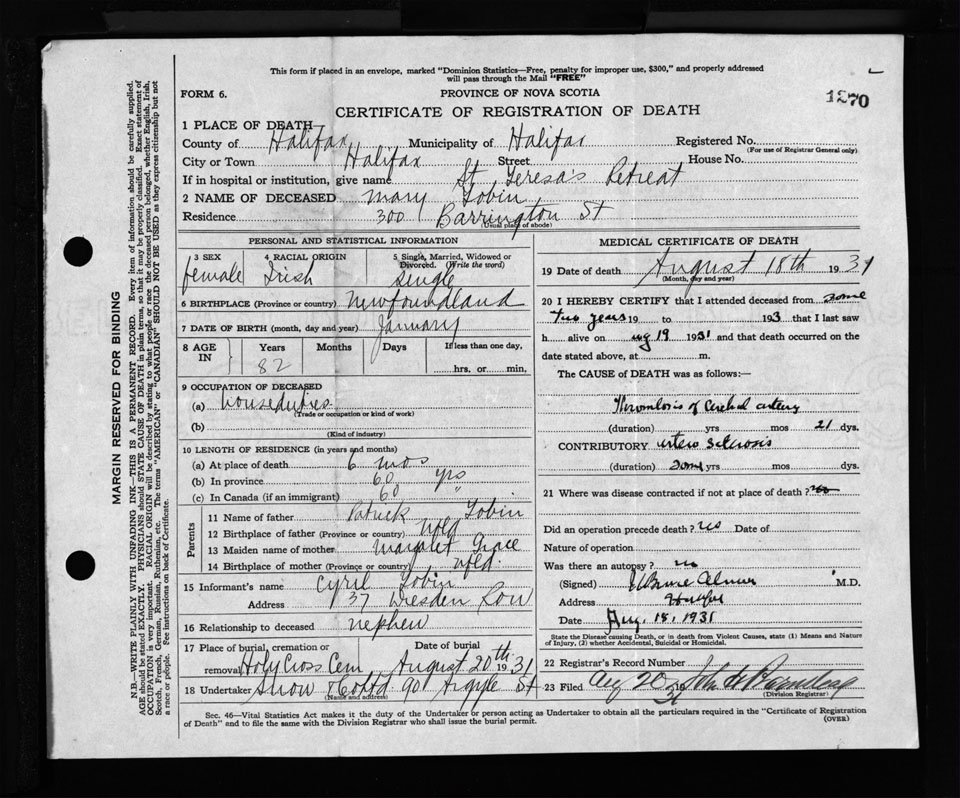 This form if placed in an envelope, marked "Dominion Statistics—Free, penalty for improper use, $300," and properly addressed
will pass through the Mail "FREE"
FORM 6.
PROVINCE OF NOVA SCOTIA
1270
CERTIFICATE OF REGISTRATION OF DEATH
1 PLACE OF DEATH—
County of Halifax Municipality of Halifax Registered No.
(For use of Registrar General only)
City or Town Halifax Street House No.
If in hospital or institution, give name St Teresa's Retreat
2 NAME OF DECEASED Mary Tobin
Residence 300 Barrington St
(Usual place of abode)
PERSONAL AND STATISTICAL INFORMATION
3 SEX 4 RACIAL ORIGIN 5 Single, Married, Widowed or
Divorced. (Write the word)
female Irish single
6 BIRTHPLACE (Province or country) Newfoundland
7 DATE OF BIRTH (month, day and year) January
8 AGE IN Years Months Days If less than one day,
82 hrs. or min.
9 OCCUPATION OF DECEASED
(a) houseduties
(Trade or occupation or kind of work)
(b)
(Kind of industry)
10 LENGTH OF RESIDENCE (in years and months)
(a) At place of death 6 mos
(b) In province 60 yrs
(c) In Canada (if an immigrant) 60 "
Parents
11 Name of father Patrick Tobin
12 Birthplace of father (Province or country) Nfld
13 Maiden name of mother Margaret Grace
14 Birthplace of mother (Province or country) Nfld.
15 Informant's name Cyril Tobin
Address 37 Dresden Row
16 Relationship to deceased nephew
17 Place of burial, cremation or Date of burial
removal Holy Cross Cem August 20th 1931
18 Undertaker Snow & Co Ltd 90 Argyle St
(Name and address)
MEDICAL CERTIFICATE OF DEATH
19 Date of death August 18th 1931
(Month, day and year)
20 I HEREBY CERTIFY that I attended deceased from some
two years 19 to 193 that I last saw
h alive on Aug 19 1931 and that death occurred on the
date stated above, at m.
The CAUSE of DEATH was as follows:—
Thrombosis of Cerebral artery
(duration) yrs mos 21 dys.
CONTRIBUTORY arterio sclerosis
(duration) some yrs mos dys.
21 Where was disease contracted if not at place of death? no
Did an operation precede death? no Date of
Nature of operation
Was there an autopsy? no
(Signed) M.D.
Address Halifax
Date Aug. 18, 1931
State the Disease causing Death, or in death from Violent Causes, state (1) Means and Nature
of Injury, (2) whether Accidental, Suicidal or Homicidal.
22 Registrar's Record Number
23 Filed Aug 20 31 John
(Division Registrar)
Sec. 46—Vital Statistics Act makes it the duty of the Undertaker or person acting as Undertaker to obtain all the particulars required in the "Certificate of Registration
of Death" and to file the same with the Division Registrar who shall issue the burial permit.
(OVER)
MARGIN RESERVED FOR BINDING
N.B.—WRITE PLAINLY WITH UNFADING INK—THIS IS A PERMANENT RECORD. Every item of information should be carefully supplied.
AGE should be stated EXACTLY. PHYSICIANS should STATE CAUSE OF DEATH in plain terms, so that it may be properly classified. Exact statement of
OCCUPATION is very important. RACIAL ORIGIN will be described by stating to what people or race the deceased person belonged, whether English, Irish,
Scotch, French, German, Russian, Ruthenian, etc. The terms "AMERICAN" or "CANADIAN" SHOULD NOT BE USED as they express citizenship but not
a race or people. See instructions on back of Certificate.